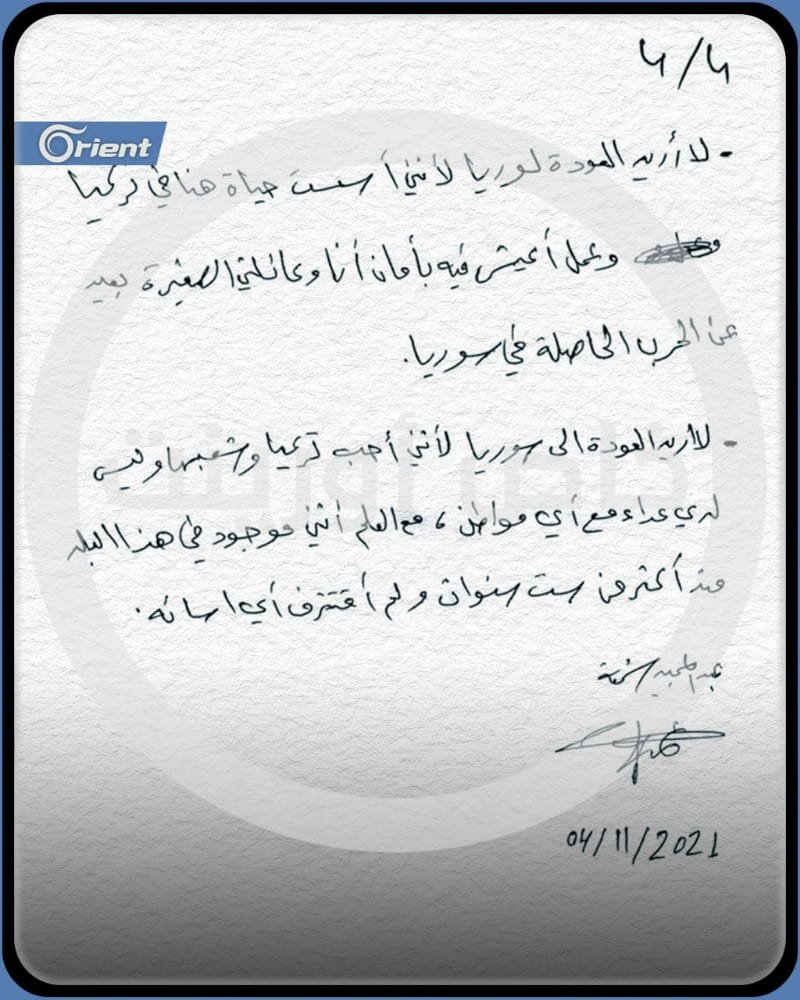 4/4
Orient
- لا أريد العودة لسوريا لأنني أسست حياة هنا في تركيا
وعمل أعيش فيه بأمان أنا وعائلتي الصغيرة بعيد
عن الحرب الحاصلة في سوريا.
- لا أريد العودة الى سوريا لأنني أحب تركيا وشعبها وليس
لدي عداء مع أي مواطن، مع العلم أنني موجود في هذا البلد
منذ أكثر من ست سنوات ولم أقترف أي اسائه.
عبد المجيد
04/11/2021